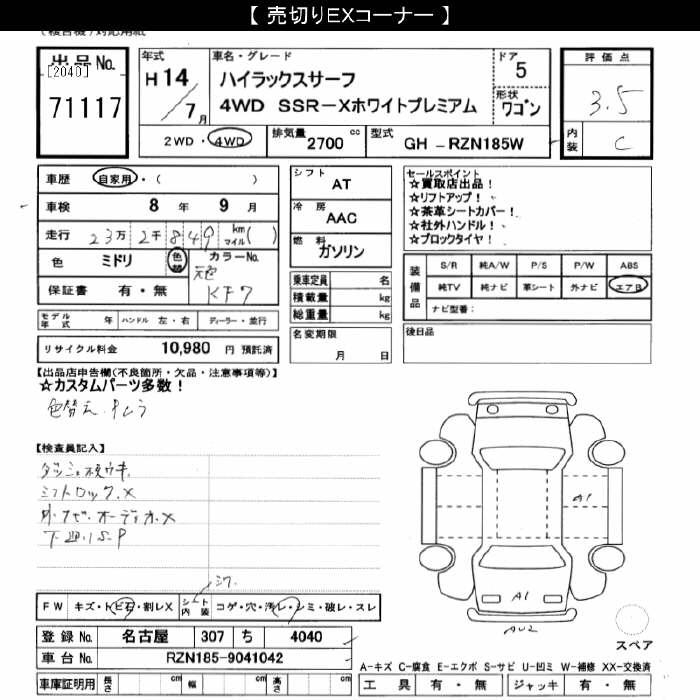 【 売切りEXコーナー 】
出品No.
[2040]
71117
年式
H14/7月
車名・グレード
ハイラックスサーフ
4WD SSR-Xホワイトプレミアム
ドア
5
形状
ワゴン
評価点
3.5
内装
C
2WD・4WD
排気量 2700 cc
型式 GH-RZN185W
車歴 自家用・( )
車検 8年 9月
走行 23万2千849 km マイル( )
色 ミドリ 色替 カラーNo.
元色 KF7
保証書 有・無
モデル年式 年 ハンドル 左・右 ディーラー・並行
リサイクル料金 10,980 円 預託済
シフト AT
冷房 AAC
燃料 ガソリン
乗車定員 名
積載量 kg
総重量 kg
名変期限
月 日
セールスポイント
☆買取店出品!
☆リフトアップ!
☆茶革シートカバー!
☆社外ハンドル!
☆ブロックタイヤ!
装備品
S/R 純A/W P/S P/W ABS
純TV 純ナビ 革シート 外ナビ エアB
ナビ型番:
後日品
【出品店申告欄(不良箇所・欠品・注意事項等)】
☆カスタムパーツ多数!
色替え
【検査員記入】
シフトロック.X
外ナビ.オーディオ.X
下廻りS.P
FW キズ・トビ石・割レX シート内装 コゲ・穴・汚レ・シミ・破レ・スレ
登録No. 名古屋 307 ち 4040
車台No. RZN185-9041042
車庫証明用 長さ cm 幅 cm 高さ cm
A1
A1
AU2
スペア
A-キズ C-腐食 E-エクボ S-サビ U-凹ミ W-補修 XX-交換済
工具 有・無 ジャッキ 有・無